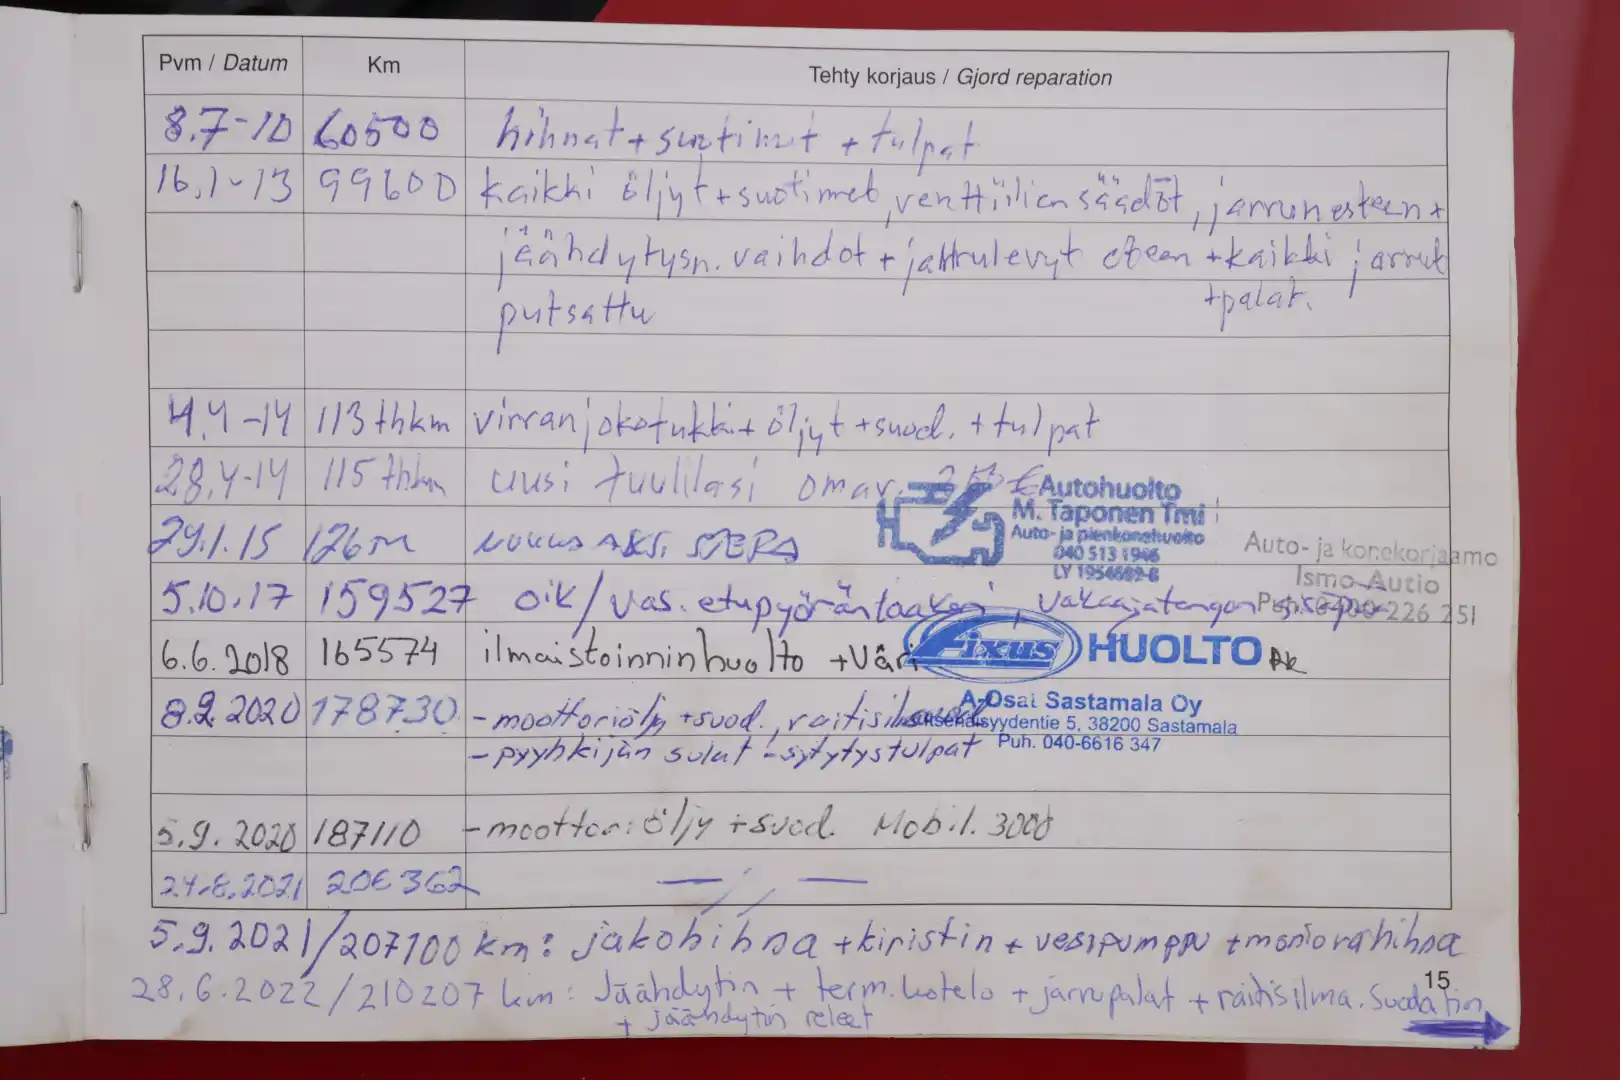 Pvm / Datum Km Tehty korjaus / Gjord reparation
8.7-10 60500 hihnat + suotimet + tulpat
16.1-13 99600 kaikki öljyt + suotimet, venttiilien säädöt, jarrunesteen +
jäähdytysn. vaihdot + jarrulevyt eteen + kaikki jarrut
+palat.
putsattu
4.4-14 113 thkm virranjakotukki + öljyt + suod. + tulpat
28.4-14 115 thkm uusi tuulilasi omav.
Autohuolto
M. Taponen Tmi
Auto- ja pienkonehuolto
040 513 1946
29.1.15 126
Auto- ja konekorjaamo
Ismo Autio
Puh. 0400-226 251
5.10.17 159527 oik/vas. etupyöränlaakeri,
6.6.2018 165574 ilmastoinninhuolto + väri
Fixus HUOLTO
A-Osat Sastamala Oy
5, 38200 Sastamala
Puh. 040-6616 347
8.2.2020 178730 - moottoriöljy + suod.,
- pyyhkijän sulat - sytytystulpat
5.9.2020 187110 - moottoriöljy + suod. Mobil. 3000
24.8.2021 206362 — // —
5.9.2021/207100 km: jakohihna + kiristin + vesipumppu + moniurahihna
28.6.2022/210207 km: Jäähdytin + term.kotelo + jarrupalat + raitisilma.suodatin
+ jäähdytin releet
15